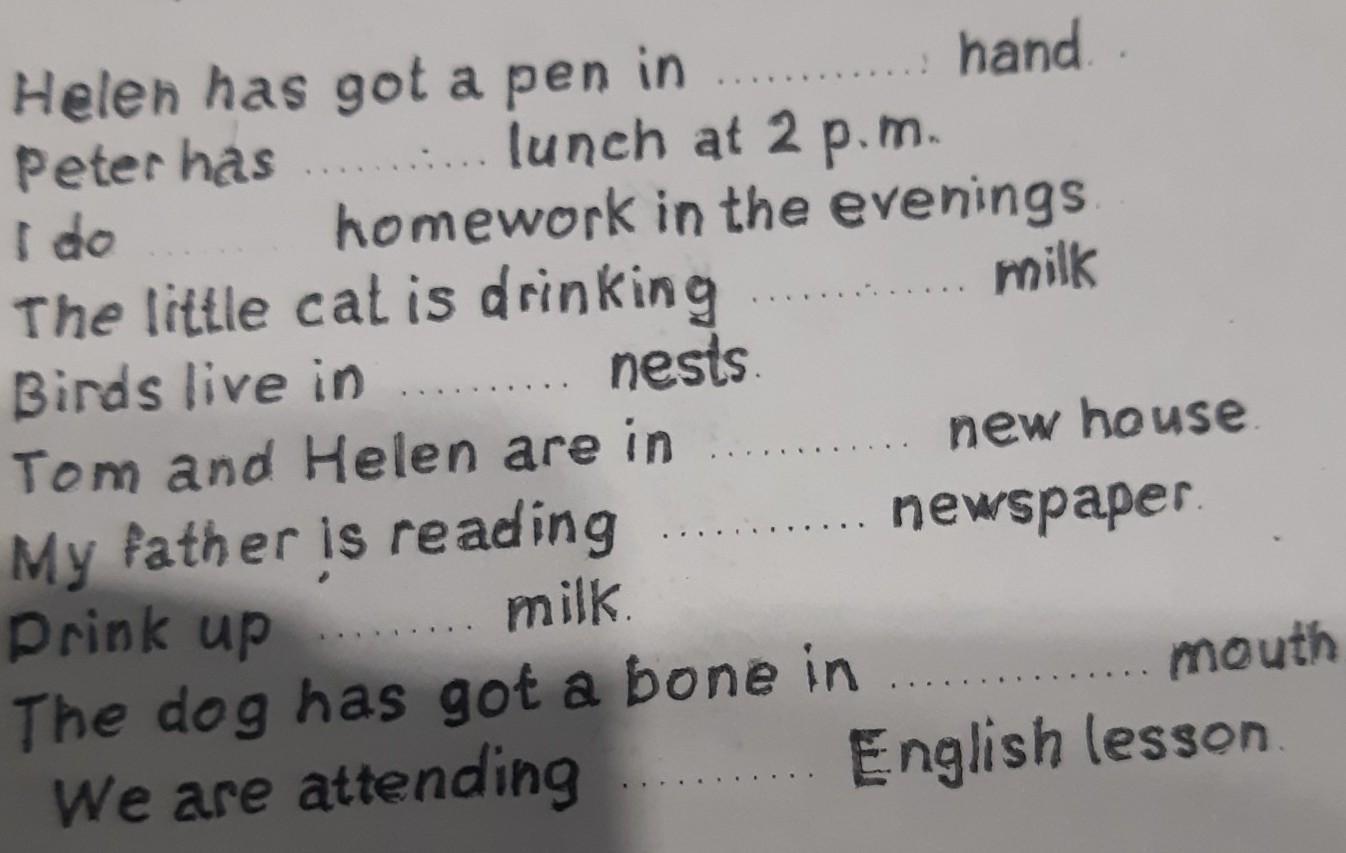 Helen has got a pen in ............. hand.
Peter has ............. lunch at 2 p.m.
I do ............. homework in the evenings.
The little cat is drinking ............. milk
Birds live in .......... nests.
Tom and Helen are in ............ new house.
My father is reading ............ newspaper.
Drink up ......... milk.
The dog has got a bone in ............... mouth
We are attending ........... English lesson.